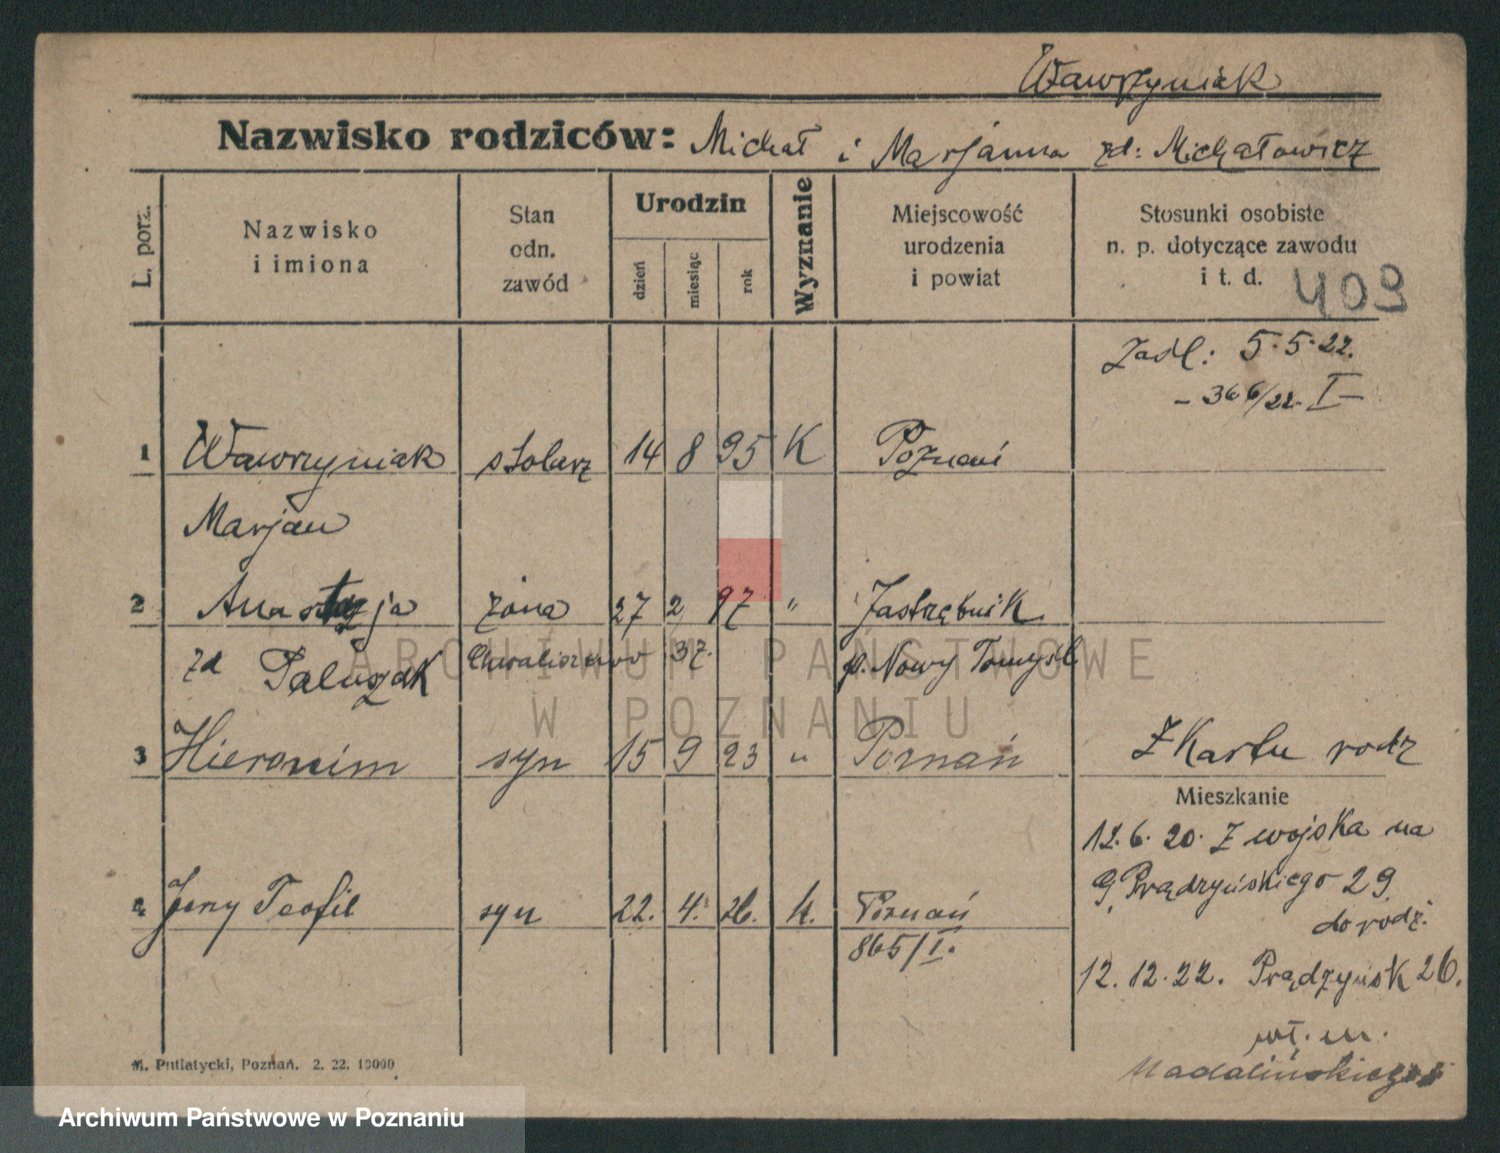 Wawrzyniak
Nazwisko rodziców: Michał i Marjanna zd: Michałowicz
L. porz.
Nazwisko i imiona
Stan odn. zawód
Urodzin
dzień
miesiąc
rok
Wyznanie
Miejscowość urodzenia i powiat
Stosunki osobiste n. p. dotyczące zawodu i t. d.
409
5.5.22.
- 366/22. I -
1 Wawrzyniak stolarz 14 8 95 K Poznań
Marjan
2 Anastazja żona 27 2 97 " Jastrzębnik
zd 37. p. Nowy Tomyśl
3 Hieronim syn 15 9 23 " Poznań
Z Kartu rodz
Mieszkanie
12.6.20. Z wojska na
G. Prądzyńskiego 29
do rodz.
4 Jerzy Teofil syn 22. 4. 26. k. Poznań
865/I.
12.12.22. Prądzyńsk 26.
wł. m.
Madalińskiego
M. Putiatycki, Poznań. 2. 22. 10000
ARCHIWUM PAŃSTWOWE
W POZNANIU
Archiwum Państwowe w Poznaniu